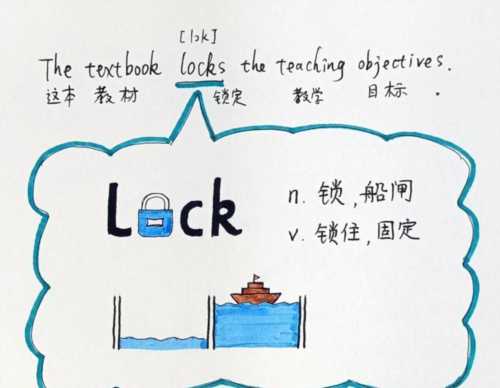 [lɔk]
The textbook locks the teaching objectives.
这本 教材 锁定 教学 目标 .
Lock
n. 锁,船闸
v. 锁住,固定